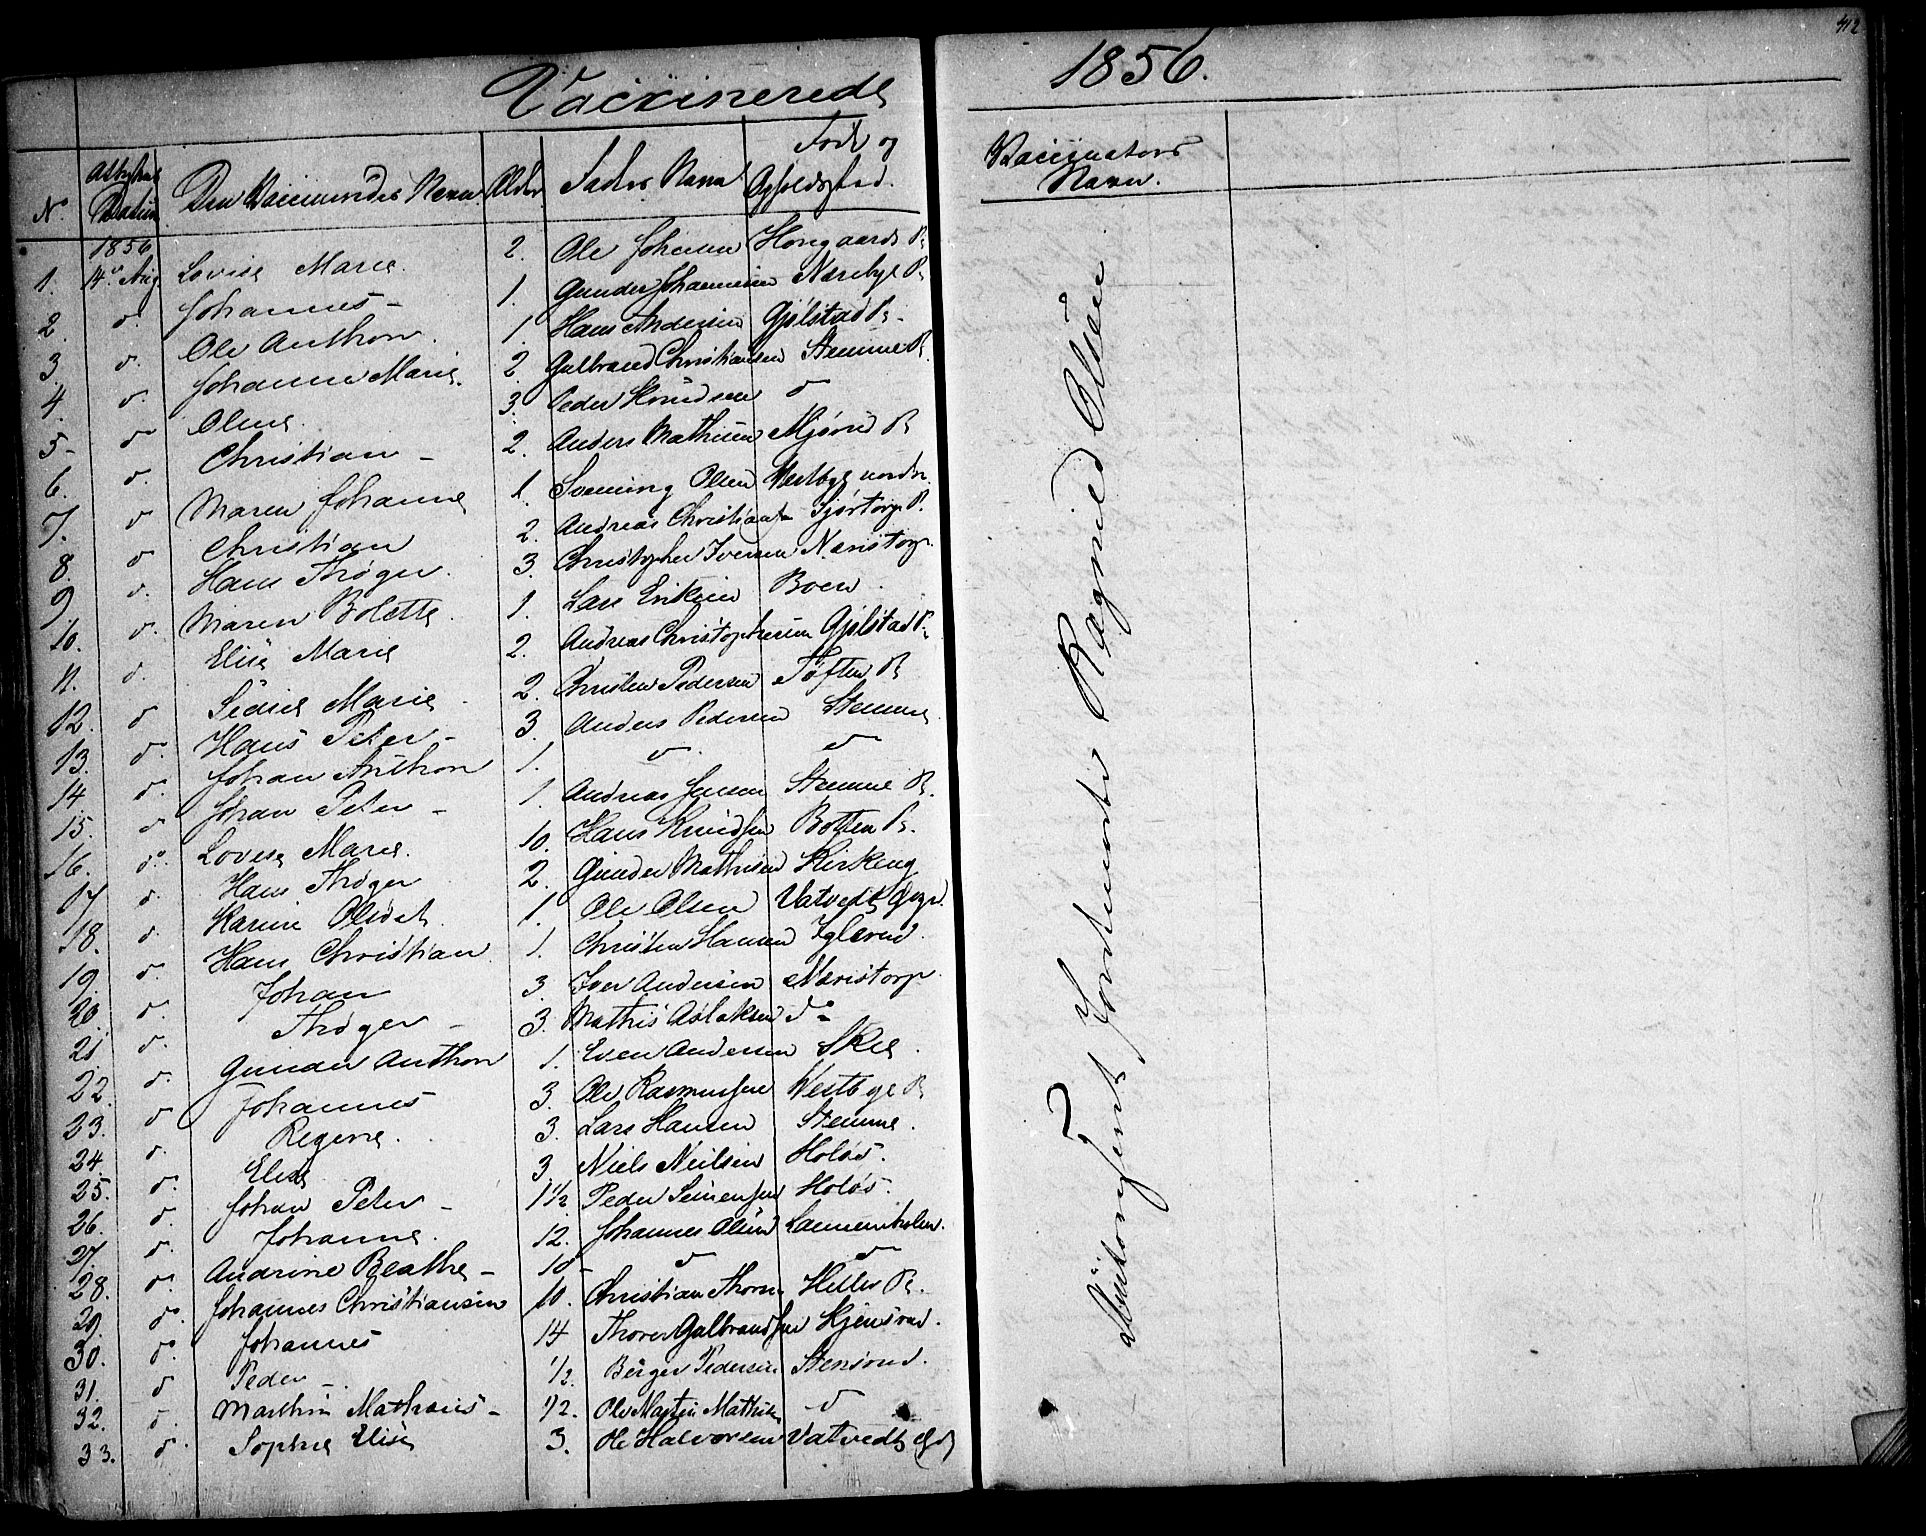 412
Vaccinerede 1856.
No Attestens Datum Den Vaccineredes Navn Alder Faders Navn Føde og Opholdssted. Vaccinators Navn.
1856
1. 14de Aug Lovise Marie. 2. Ole Johansen Horgaard P:
2. d. Johannes – 1. Gunder Johannesen Narebye P:
3. d. Ole Anthon. 1. Hans Andersen Gjølstad P: -
4. d. Johanne Marie. 2. Gulbrand Christiansen Stemme P:
5 - d Oline. 3. Peder Knudsen d
6. d. Christian – 2. Anders Mathisen Mjørud P:
7. d Maren Johanne 1. Svening Olsen Vestbye nordre
8. d Christian 2. Andreas Christians. P.
9 d. Hans Thøger. 3. Christopher Iversen Naristorp.
10. d. Maren Bolette. 1. Lars Eriksen Boen.
11. d. Elise Marie 2. Andreas Christophersen Gjølstad P:
12. d Marie. 2. Christen Pedersen Toften P:
13. d. Hans Peter – 3. Anders Pedersen Stemme
14 d. Johan Anthon 1. d. d
15. d Johan Peter – 1. Andreas Jensen Stemme P.
16. do. Lovise Marie. 10. Hans Knudsen Botten P.
17 d. Hans Thøger 2. Gunder Mathisen Kirkeng
18. d. Karine Olidet. 1. Ole Olsen Vatvedt
19. d. Hans Christian 1. Christen Hansen Iglerud.
20. d. Johan 3. Iver Andersen Naristorp.
21 d. Thøger – 3. Mathis Aslaksen do
22. d. Gunder Anthon 1. Even Andersen Skie.
23. d Johannes 3. Ole Rasmussen Vestbye P:
24 d. Regine. 3. Lars Hansen Stemme.
25. d. Elise 3. Niels Neilsen Holøs.
26. d. Johan Peter – 1 1/2 Peder Holøs.
27. d. Johanne. 12. Johannes Olsen
28. d. Andrine Beathe – 10 - d d
29. do Johannes Christiansen 10. Christian Thorsen Heller P:
30. d. Johannes 14 Thorer Gulbrandsen Kjensrud.
31. d Peder – 1/2. Børger Pedersen Stensrud.
32. d. Marthin Mathæus – 1/2. Ole Martin Mathisen d
33. d. Sophie Elise 3. Ole Halvorsen Vatvedt
Jordmoder Ragnild Olsen.